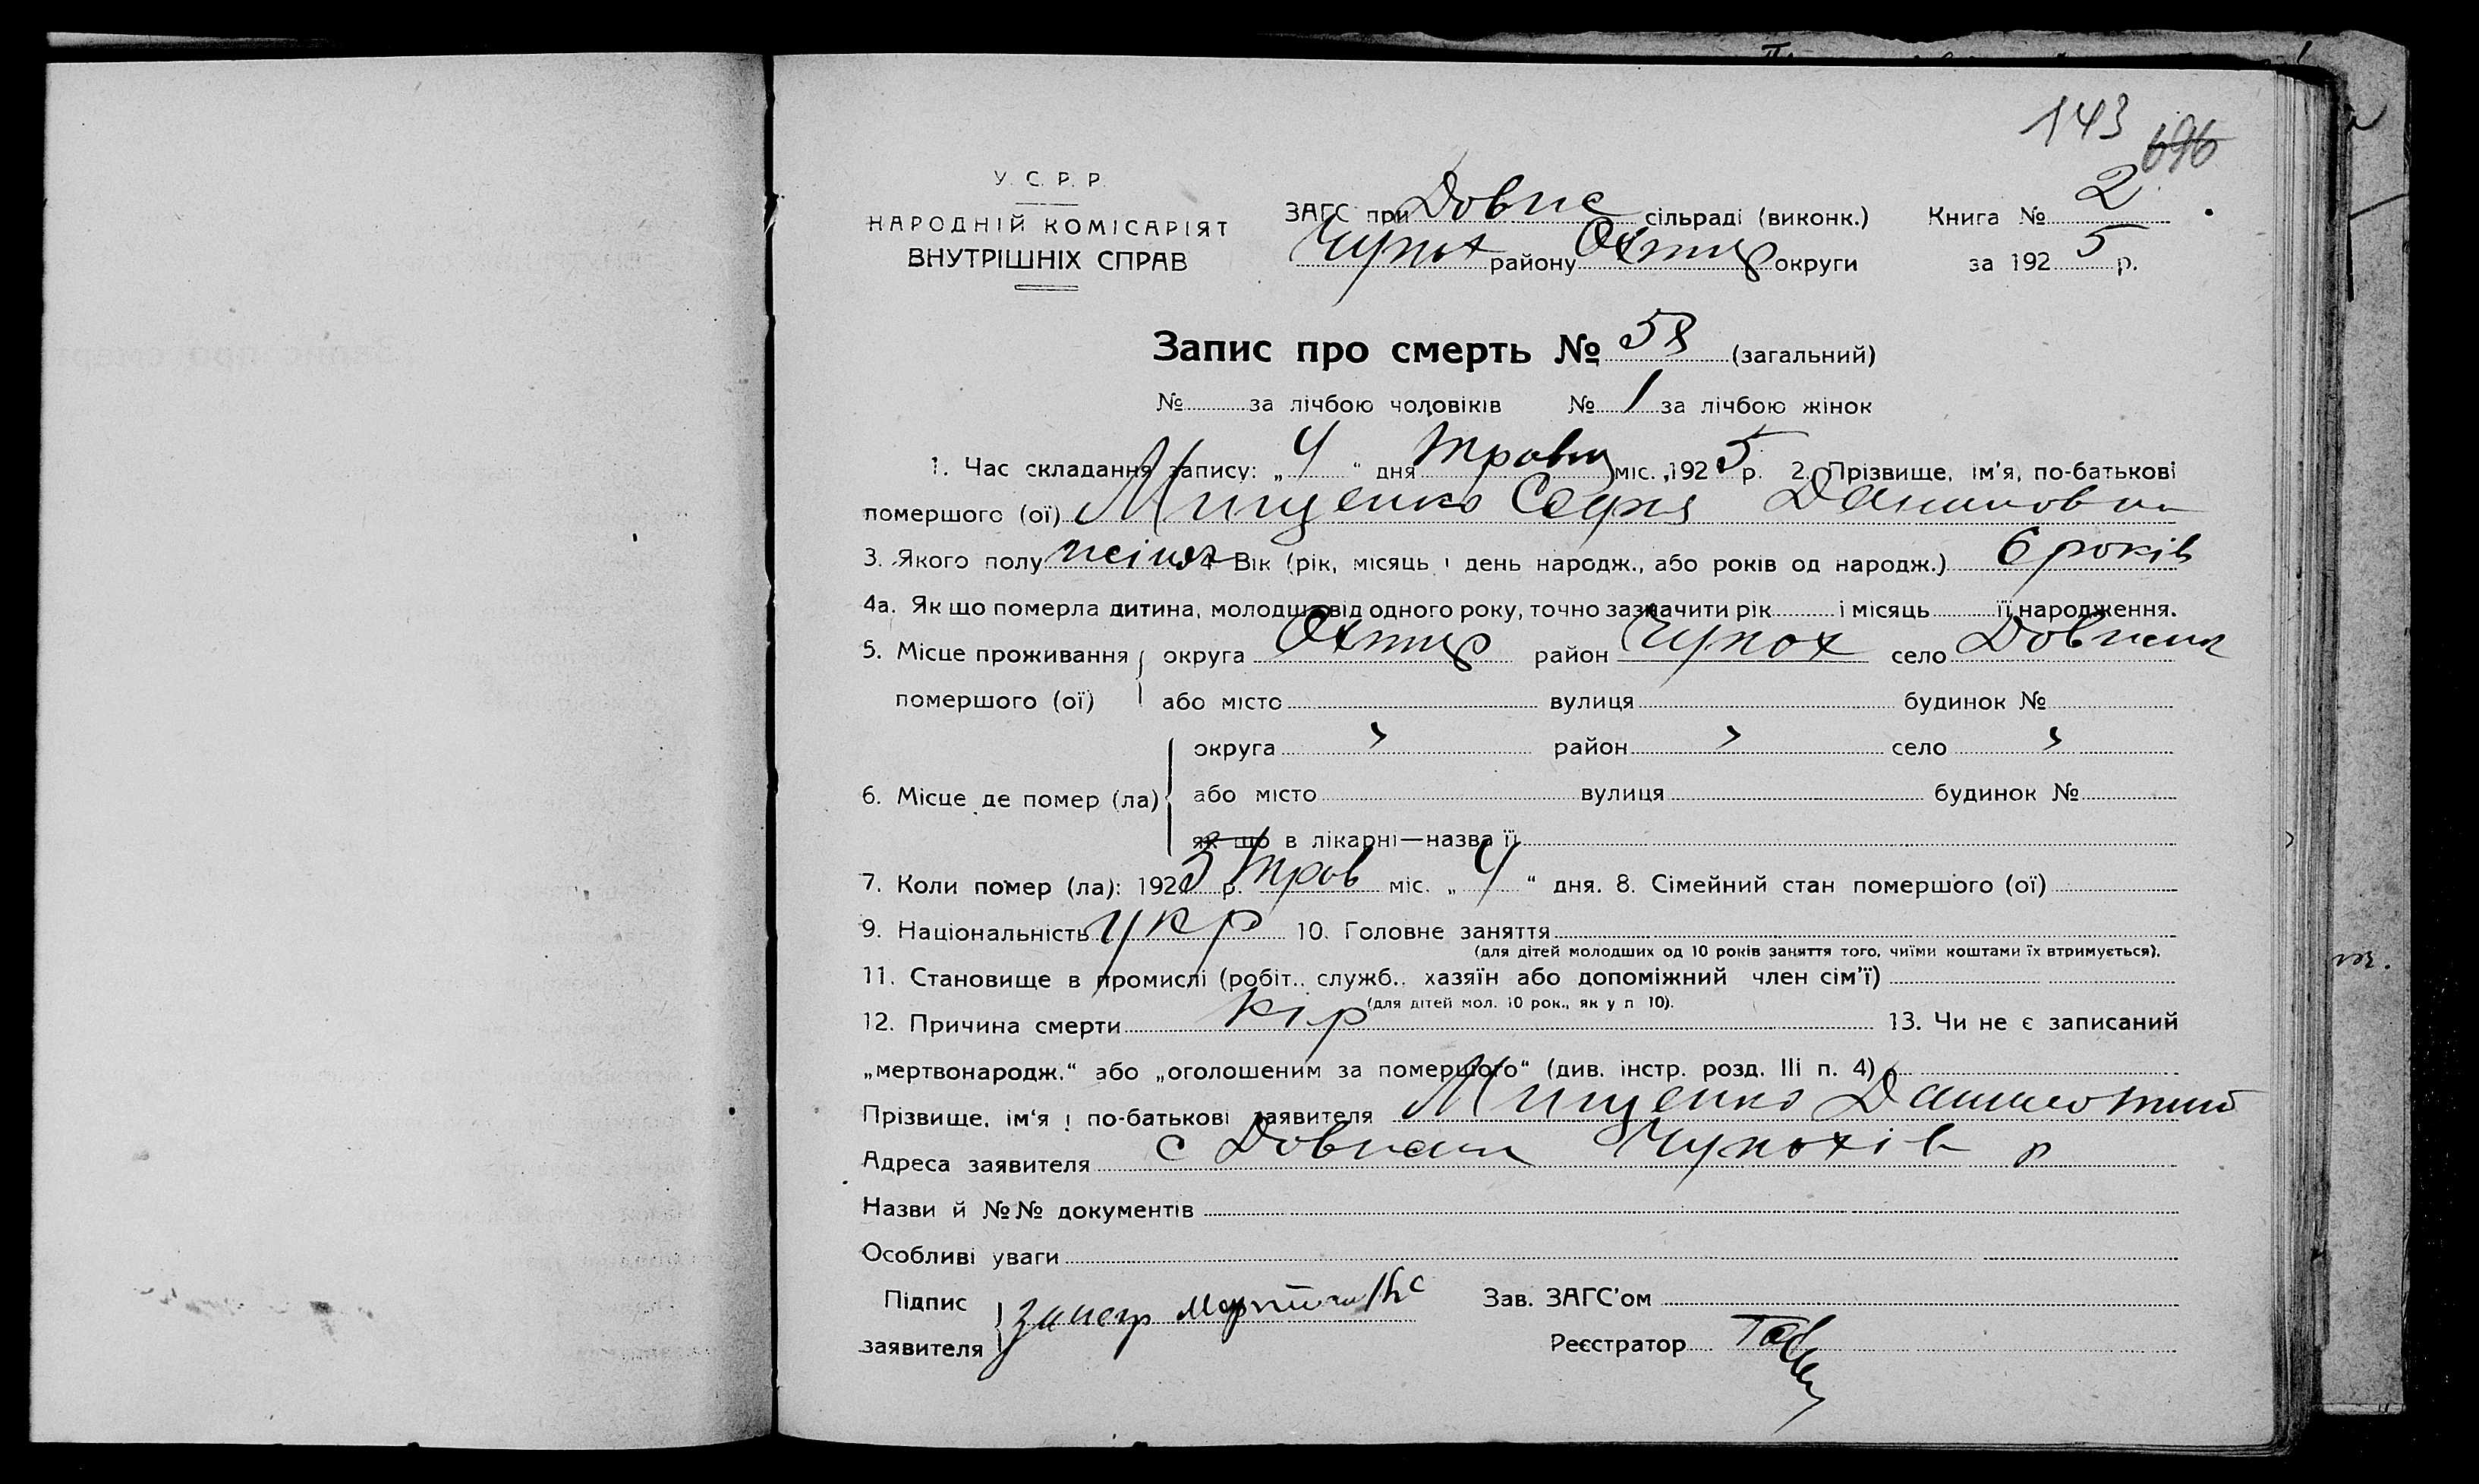 143
696
У. С. Р. Р.
НАРОДНІЙ КОМІСАРІЯТ
ВНУТРІШНІХ СПРАВ
ЗАГС при Довж сільраді (виконк.)
Чупах району Охтир округи
Книга № 2
за 1925 р.
Запис про смерть № 58 (загальний)
№ за лічбою чоловіків № 1 за лічбою жінок
1. Час складання запису: „4“ дня Травн міс. 1925 р. 2. Прізвище, ім'я, по-батькові
помершого (ої) Мищенко Софія Данилов
3. Якого полу жіноч 4. Вік (рік, місяць і день народж., або років од народж.) 6 років
4а. Як що померла дитина, молодша від одного року, точно зазначити рік і місяць її народження.
5. Місце проживання округа Охтир район Чупах село
помершого (ої) або місто вулиця будинок №
округа " район " село "
6. Місце де помер (ла) або місто вулиця будинок №
як що в лікарні—назва її
7. Коли помер (ла): 1925 р. Трав міс. „4“ дня. 8. Сімейний стан помершого (ої)
9. Національність укр 10. Головне заняття
(для дітей молодших од 10 років заняття того, чиїми коштами їх втримується).
11. Становище в промислі (робіт., служб., хазяїн або допоміжний член сім'ї)
(для дітей мол. 10 рок., як у п 10).
12. Причина смерти кір 13. Чи не є записаний
„мертвонародж.“ або „оголошеним за помершого“ (див. інстр. розд. III п. 4)
Прізвище, ім'я і по-батькові заявителя Мищенко Данило
Адреса заявителя с Чупахів р
Назви й №№ документів
Особливі уваги
Підпис
заявителя
Зав. ЗАГС'ом
Реєстратор